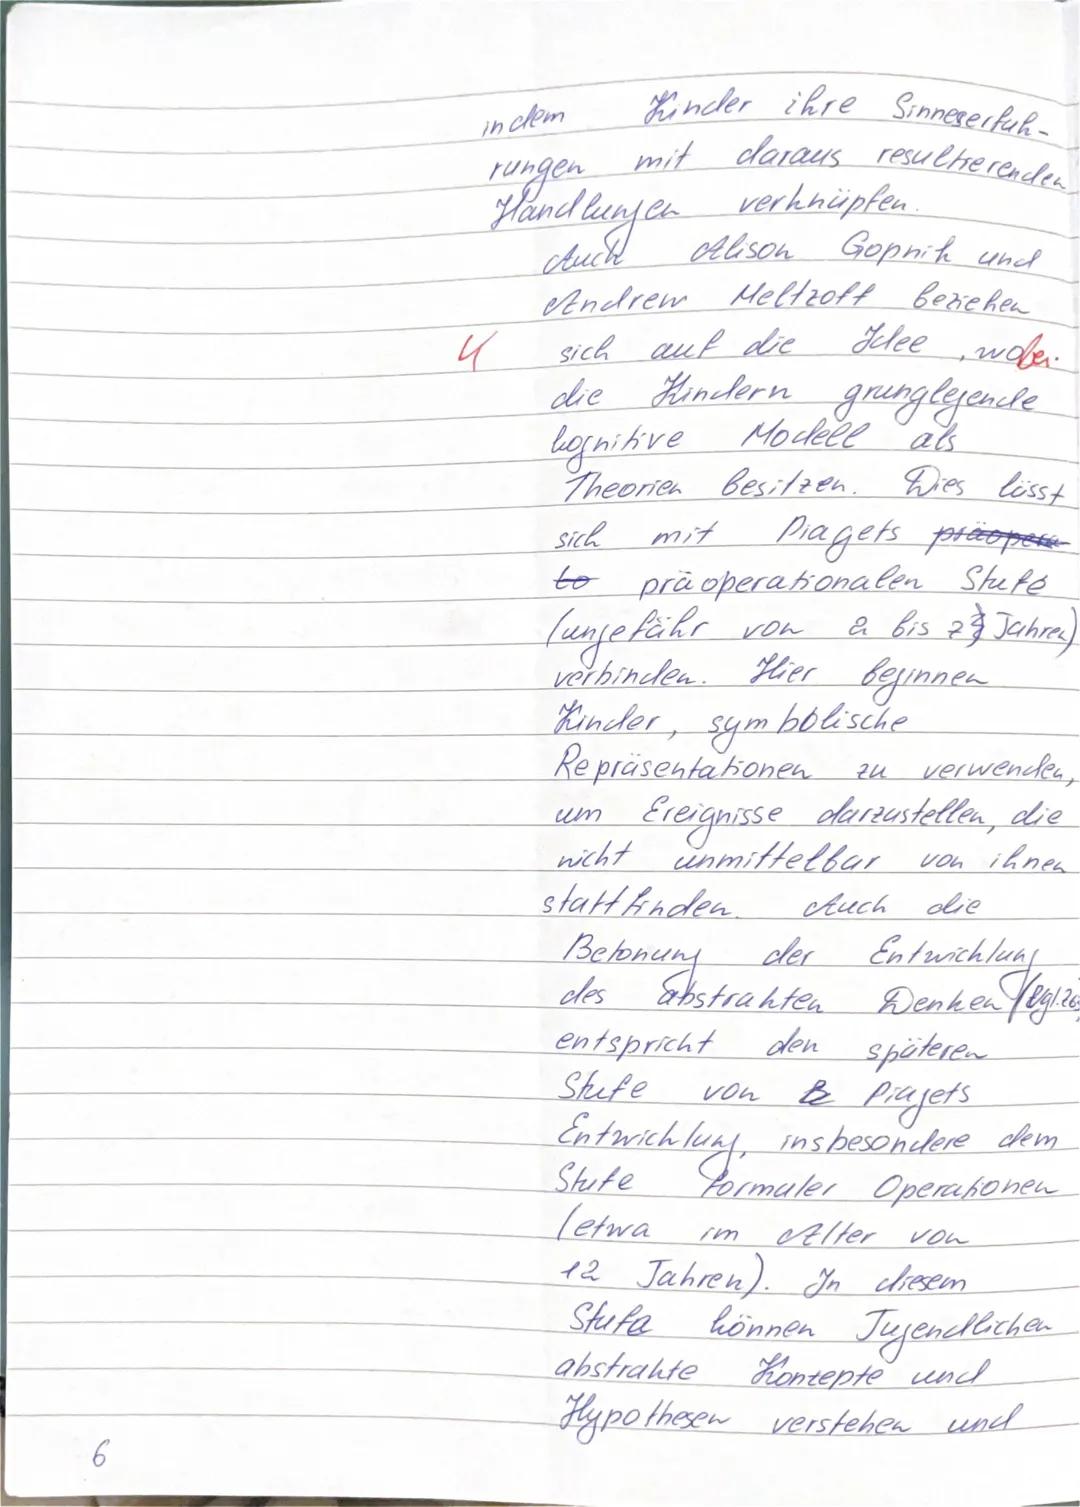 indem Kinder ihre Sinneserfah-
rungen mit daraus resultierenden
Handlungen verknüpfen.
Auch Alison Gopnik und
Andrew Meltzoff beziehen
4 sich auf die Idee, wobei
die Kindern grunglegende
kognitive Modell als
Theorien besitzen. Dies lässt
sich mit Piagets präopera-
to präoperationalen Stufe
(ungefähr von 2 bis 7 Jahren)
verbinden. Hier beginnen
Kinder, symbolische
Repräsentationen zu verwenden,
um Ereignisse darzustellen, die
nicht unmittelbar von ihnen
stattfinden. Auch die
Betonung der Entwicklung
des abstrakten Denken (vgl.
entspricht den späteren
Stufe von B Piagets
Entwicklung, insbesondere dem
Stufe formaler Operationen
(etwa im Alter von
12 Jahren). In diesem
Stufa können Jugendlichen
abstrakte Konzepte und
Hypothesen verstehen und
6